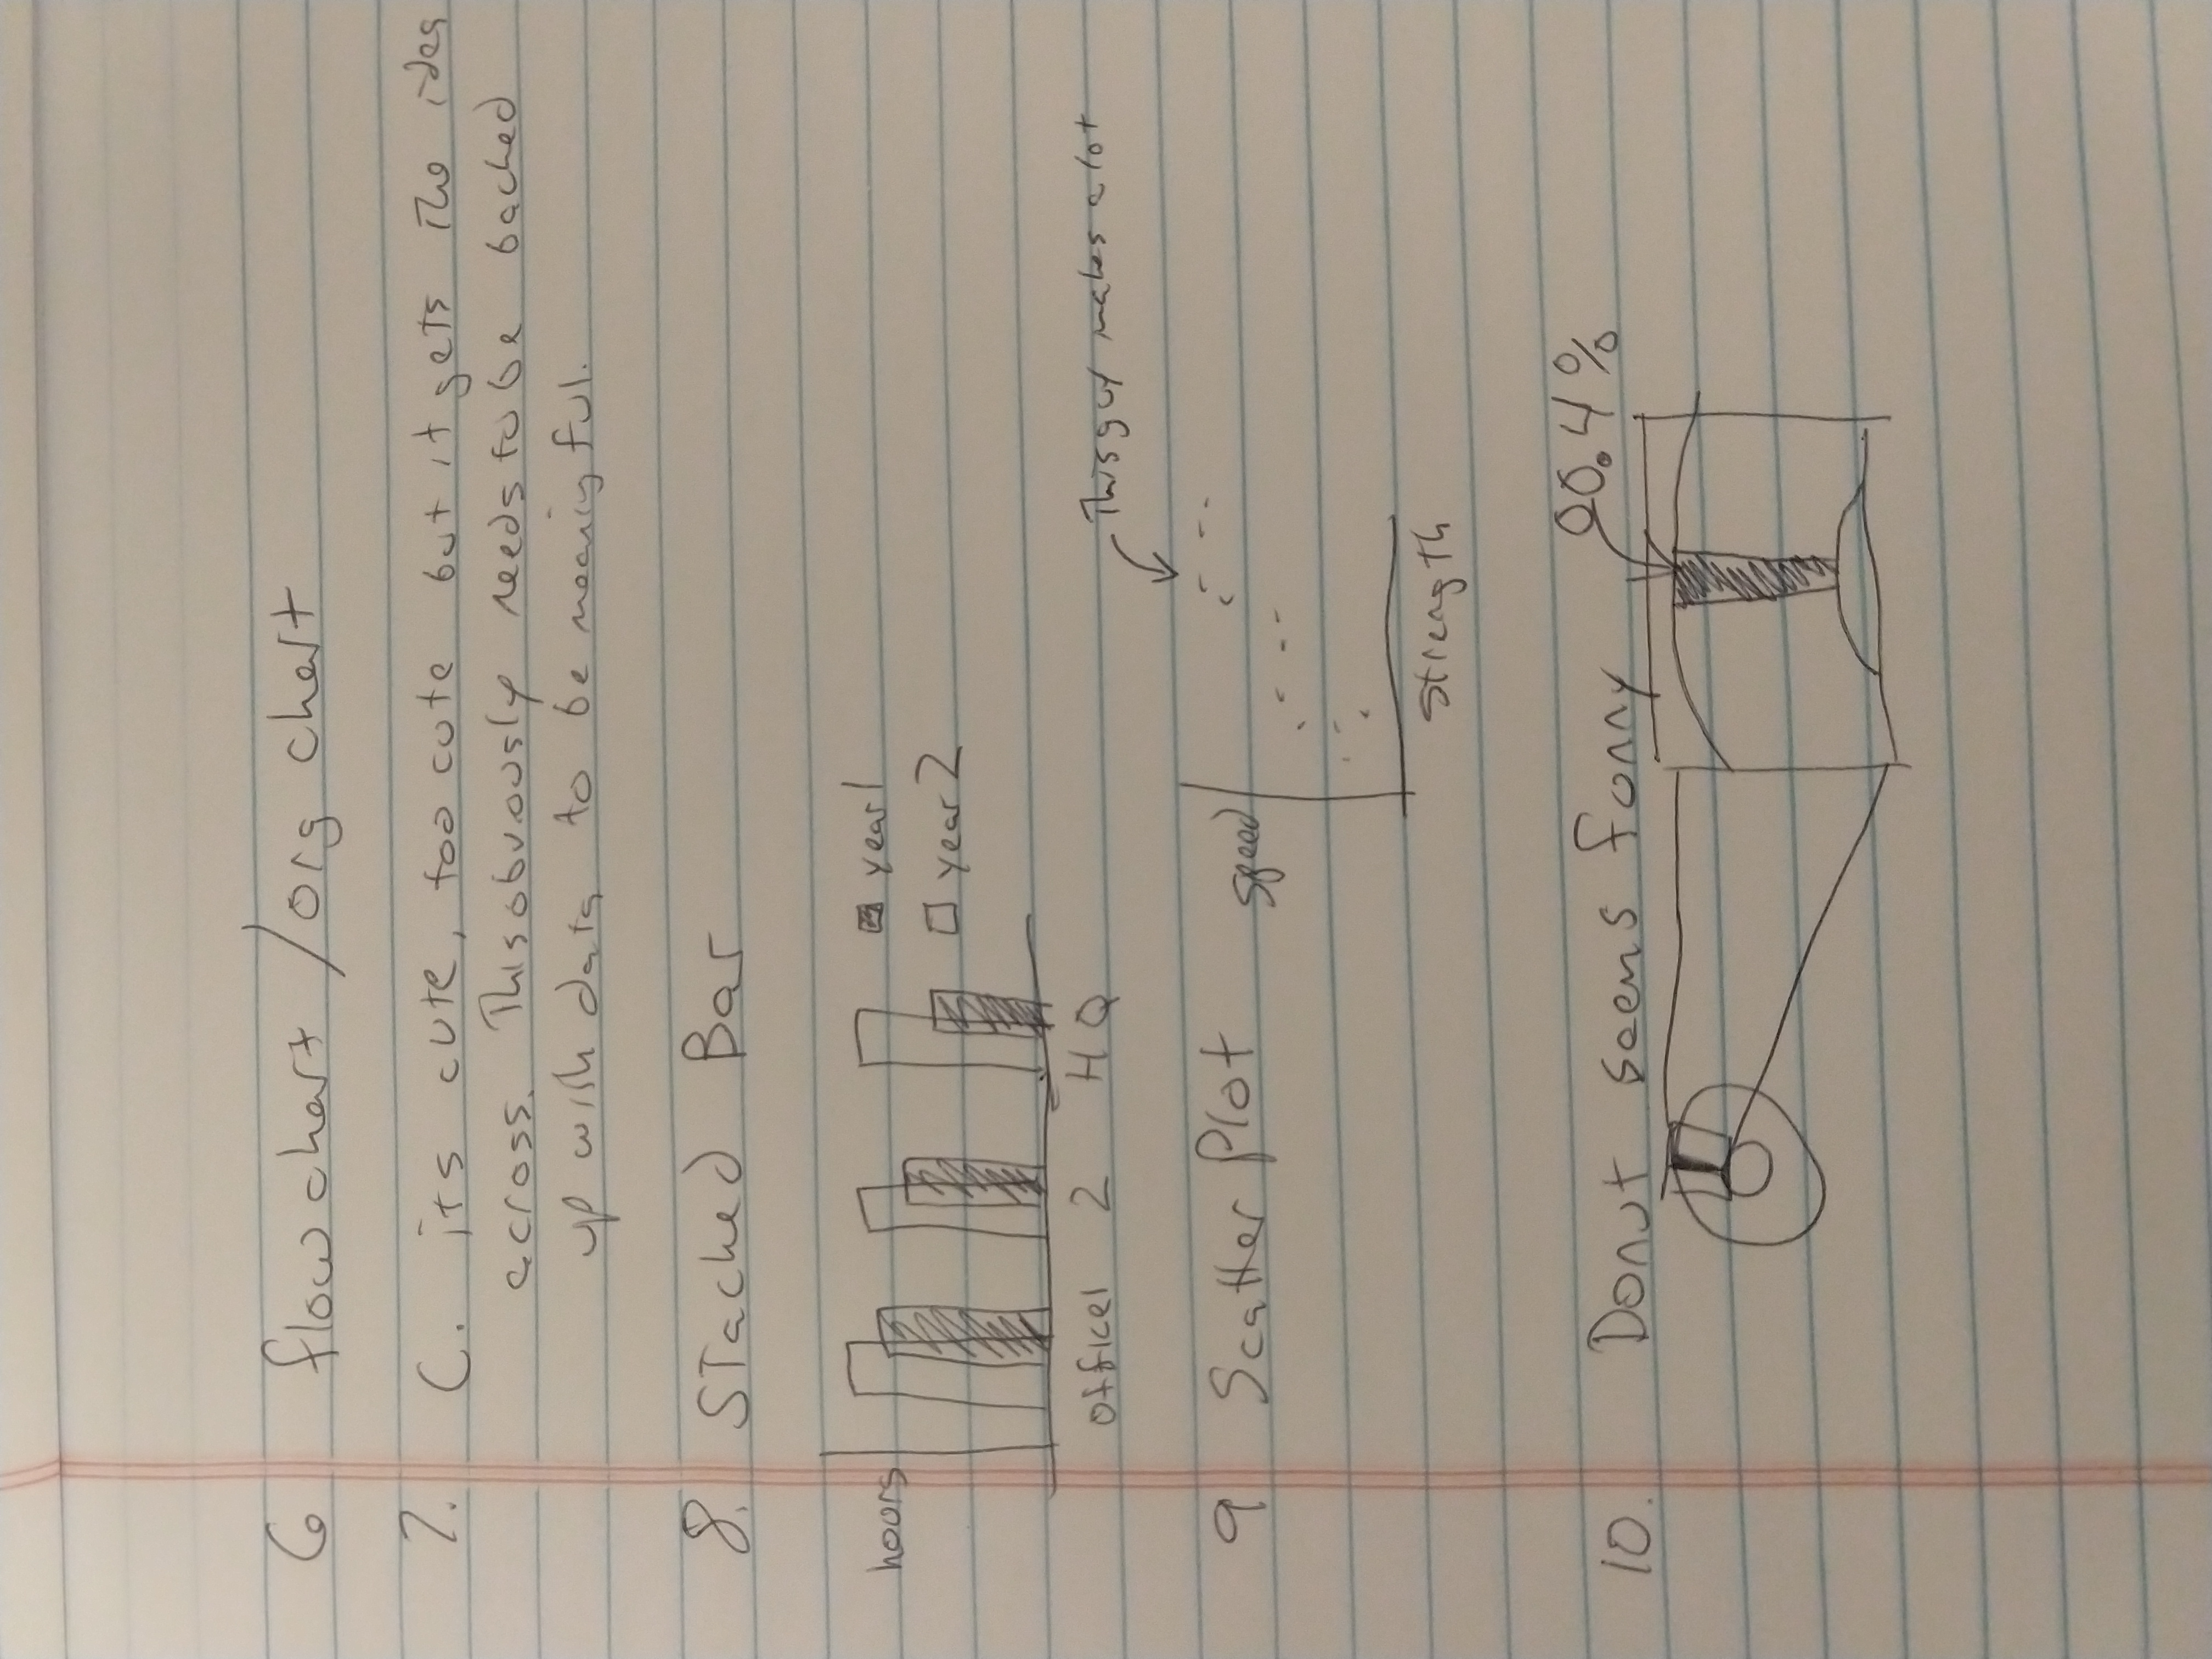 6 flow chart / org chart
7. C. its cute, too cute but it gets the idea
across. This obviously needs to be backed
up with data to be meaningful.
8. Stacked Bar
hours
year 1
year 2
office 1 2 HQ
9 Scatter Plot
speed
This guy makes a lot
strength
10. Donut seems fonny
00.4%